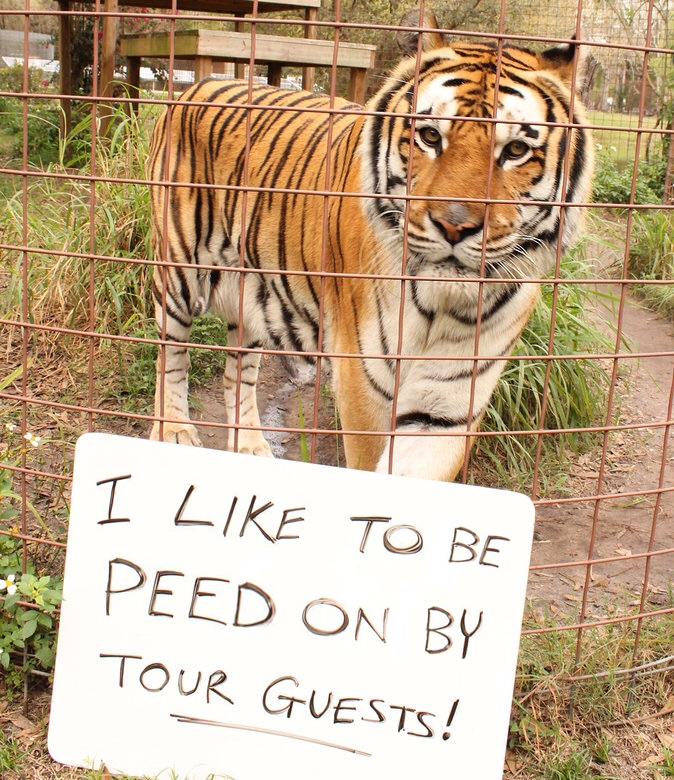 I LIKE TO BE
PEED ON BY
TOUR GUESTS!